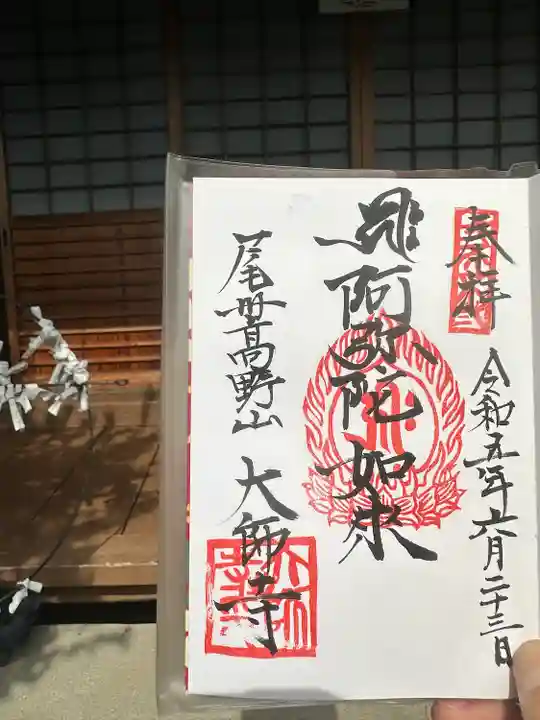 奉拝
令和五年六月二十三日
阿弥陀如来
尾世高野山 大師寺